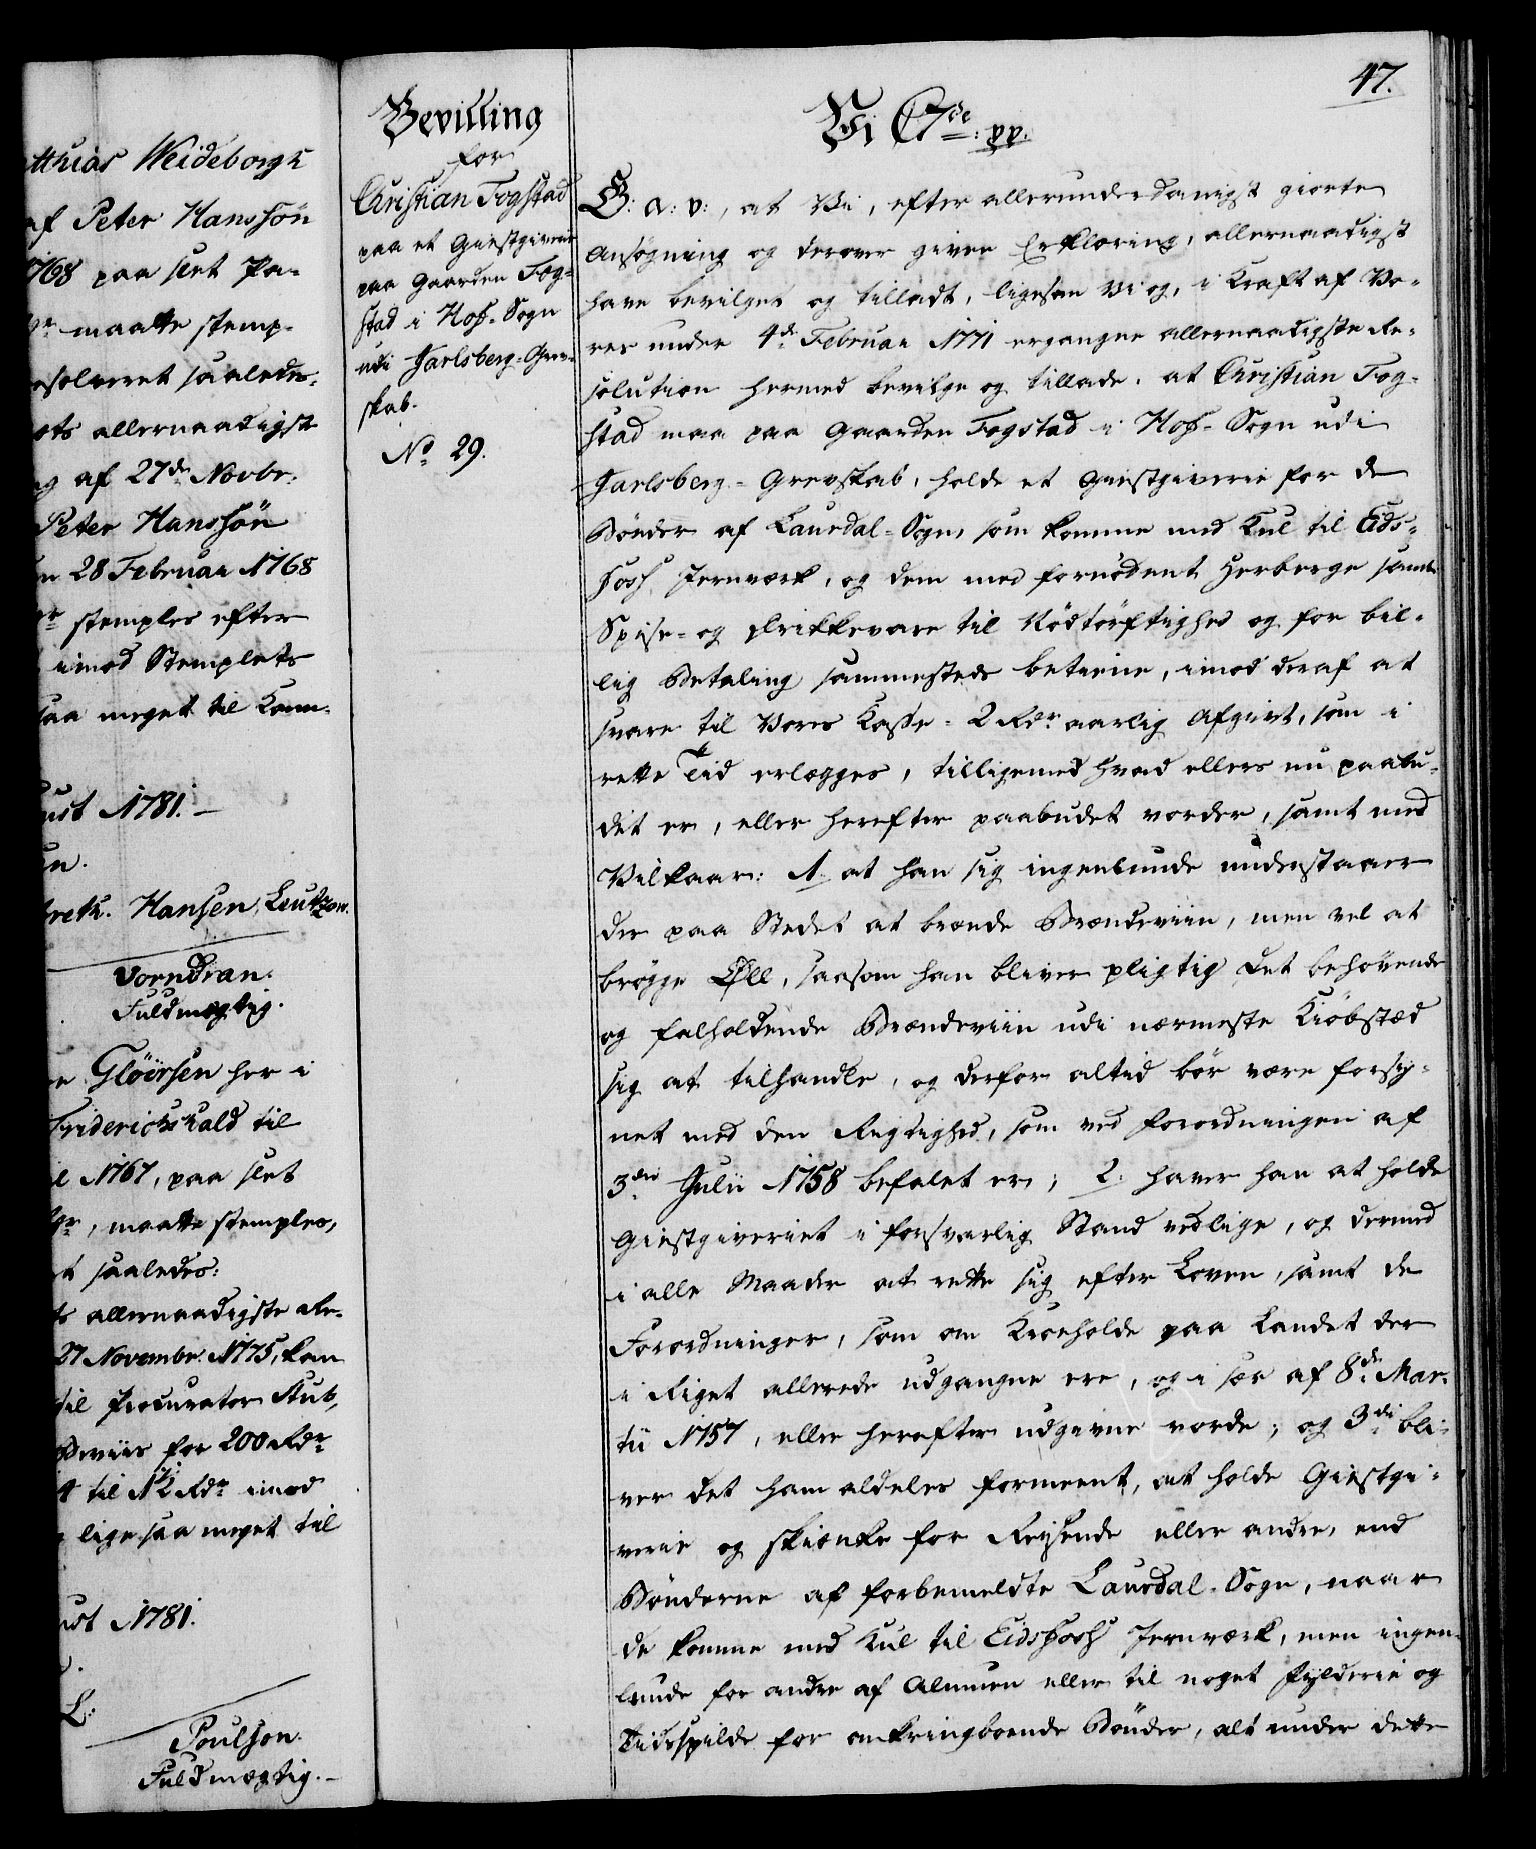 47.
atthias Weideborgh
af Peter Hanssön
1768 paa slet Pa-
maatte stemp-
esolveret saaledes:
ets allernaadigste
ng af 27de Novbr.
Peter Hanssön
en 28 Februar 1768
stemples efter
imod Stemplets
saa meget til Kam-
ust 1781. –
Hansen, Leutzow.
Vorndran.
Fuldmægtig.
Glöersen her i
Friderichshald til
il 1767, paa slet
maatte stemples,
et saaledes:
ts allernaadigste Re-
27 Novembr. 1775, kan
til Procurator Stub,
Beviis for 200 Rdr
4 til 12 Rdr imod
lige saa meget til
ust 1781.
L:
Poulson.
Fuldmægtig. –
Bevilling
for
Christian Fogstad
paa et Giestgiverie
paa Gaarden Fog-
stad i Hof-Sogn
udi Jarlsberg-Grev-
skab.
No 29.
Vi C 7de: pp.
G: a: v:, at Vi, efter allerunderdanigst giorte
Ansøgning og derover given Erklæring, allernaadigst
have bevilget og tilladt, ligesom Vi og, i Kraft af Vo-
res under 4de Februar 1771 ergangne allernaadigste Re-
solution hermed bevilge og tillade, at Christian Fog-
stad maa paa Gaarden Fogstad i Hof-Sogn udi
Jarlsberg-Grevskab, holde et Giestgiverie for de
Bönder af Laurdal-Sogn, som komme med Kul til Eids-
foss Jernværk, og dem med fornödent Herberge samt
Spise- og Drikkevare til Nödtörftighed og for bil-
lig Betaling sammesteds betiene, imod deraf at
svare til Vores Kasse 2 Rdr aarlig Afgivt, som i
rette Tid erlægges, tilligemed hvad ellers nu paabu-
det er, eller herefter paabudet vorder, samt med
Vilkaar: 1. at han sig ingenlunde understaaer
der paa Stedet at brænde Brændeviin, men vel at
brögge Öll, saasom han bliver pligtig det behövende
og falholdende Brændeviin udi nærmeste Kiöbstæd
sig at tilhandle, og derfor altid bör være forsy-
net med den Rigtighed, som ved Forordningen af
3die Julii 1758 befalet er; 2. haver han at holde
Giestgiveriet i forsvarlig Stand vedlige, og dermed
i alle Maader at rette sig efter Loven, samt de
Forordninger, som om Kroeholde paa Landet der
i Riget allerede udgangne ere, og i sær af 8de Mar-
tii 1757, eller herefter udgivne vorde; og 3di bli-
ver det ham aldeles formeent, at holde Giestgi-
verie og skienke for Reysende eller andre, end
Bönderne af forbemeldte Laurdal-Sogn, naar
de komme med Kul til Eidsfoss Jernværk, men ingen-
lunde for andre af Almuen eller til noget Fylderie og
Tidsspilde for omkringboende Bönder, alt under dette